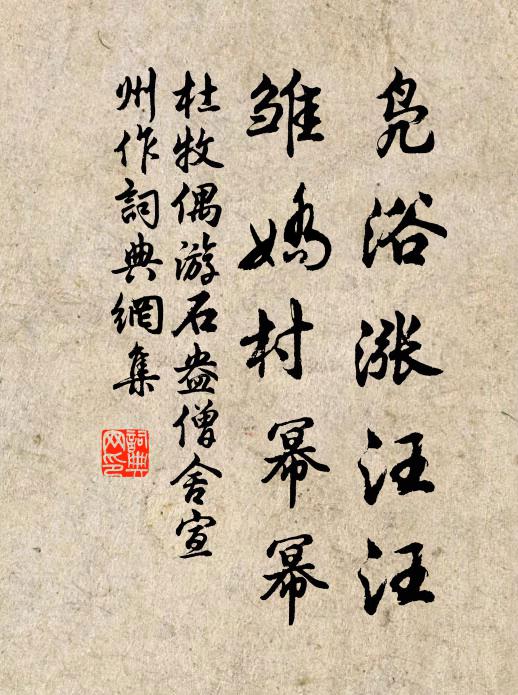 凫浴涨汪汪
雏娇村幂幂
杜牧偶游石盎僧舍宣
州作詞典網集
詞典
网印